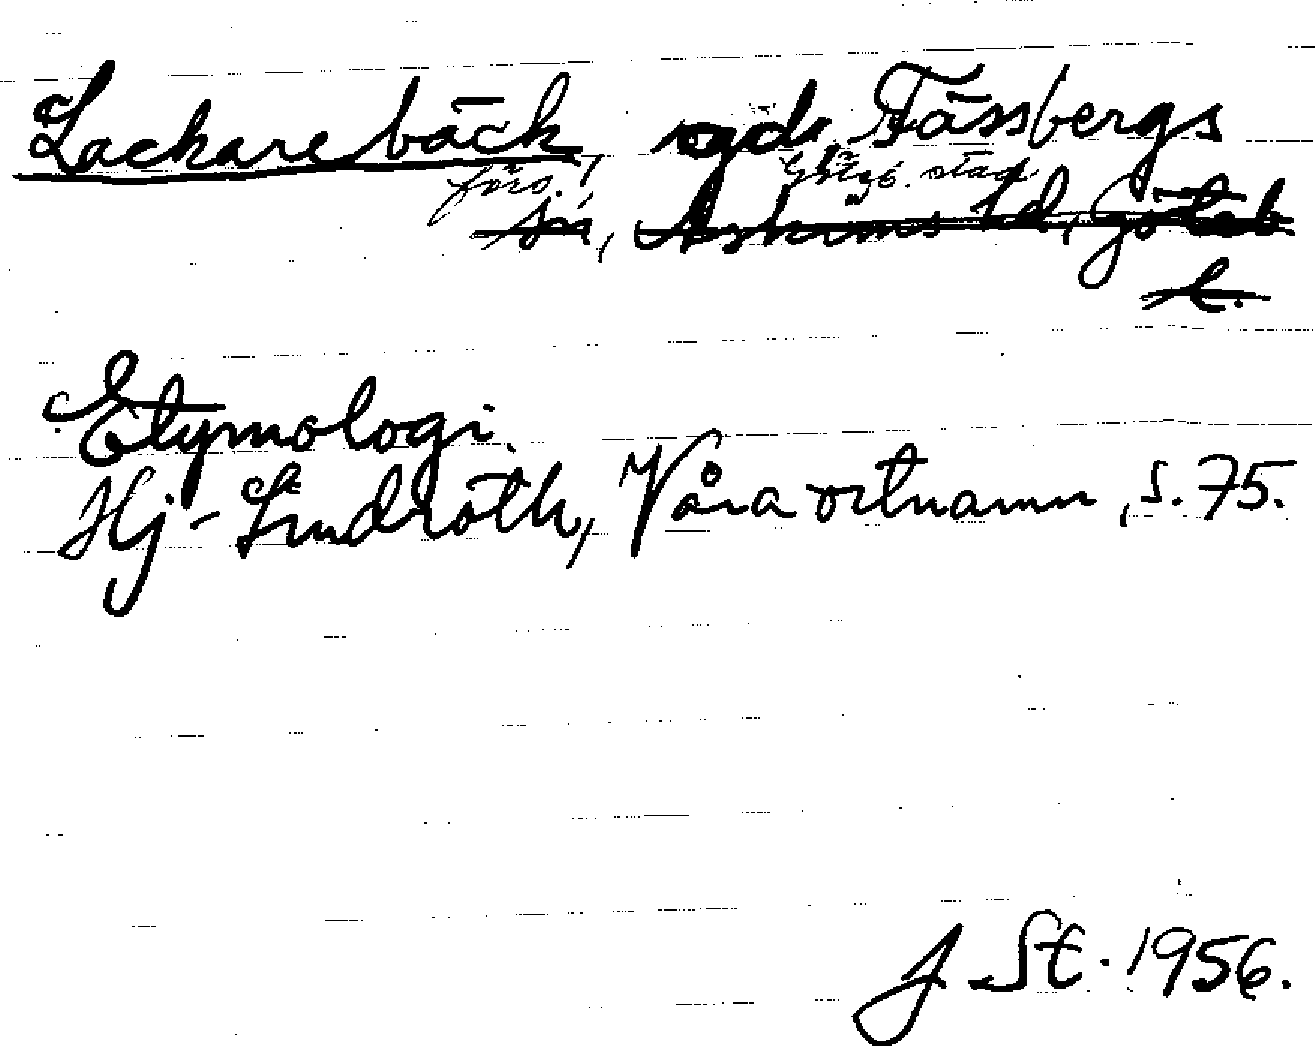 Lackarebäck, egd. Fässbergs
förs. Gtbgs. stad
sn, Askims hd, Göteb
l.
Etymologi.
Hj. Lindroth, Våra ortnamn, s. 75.
J. St. 1956.